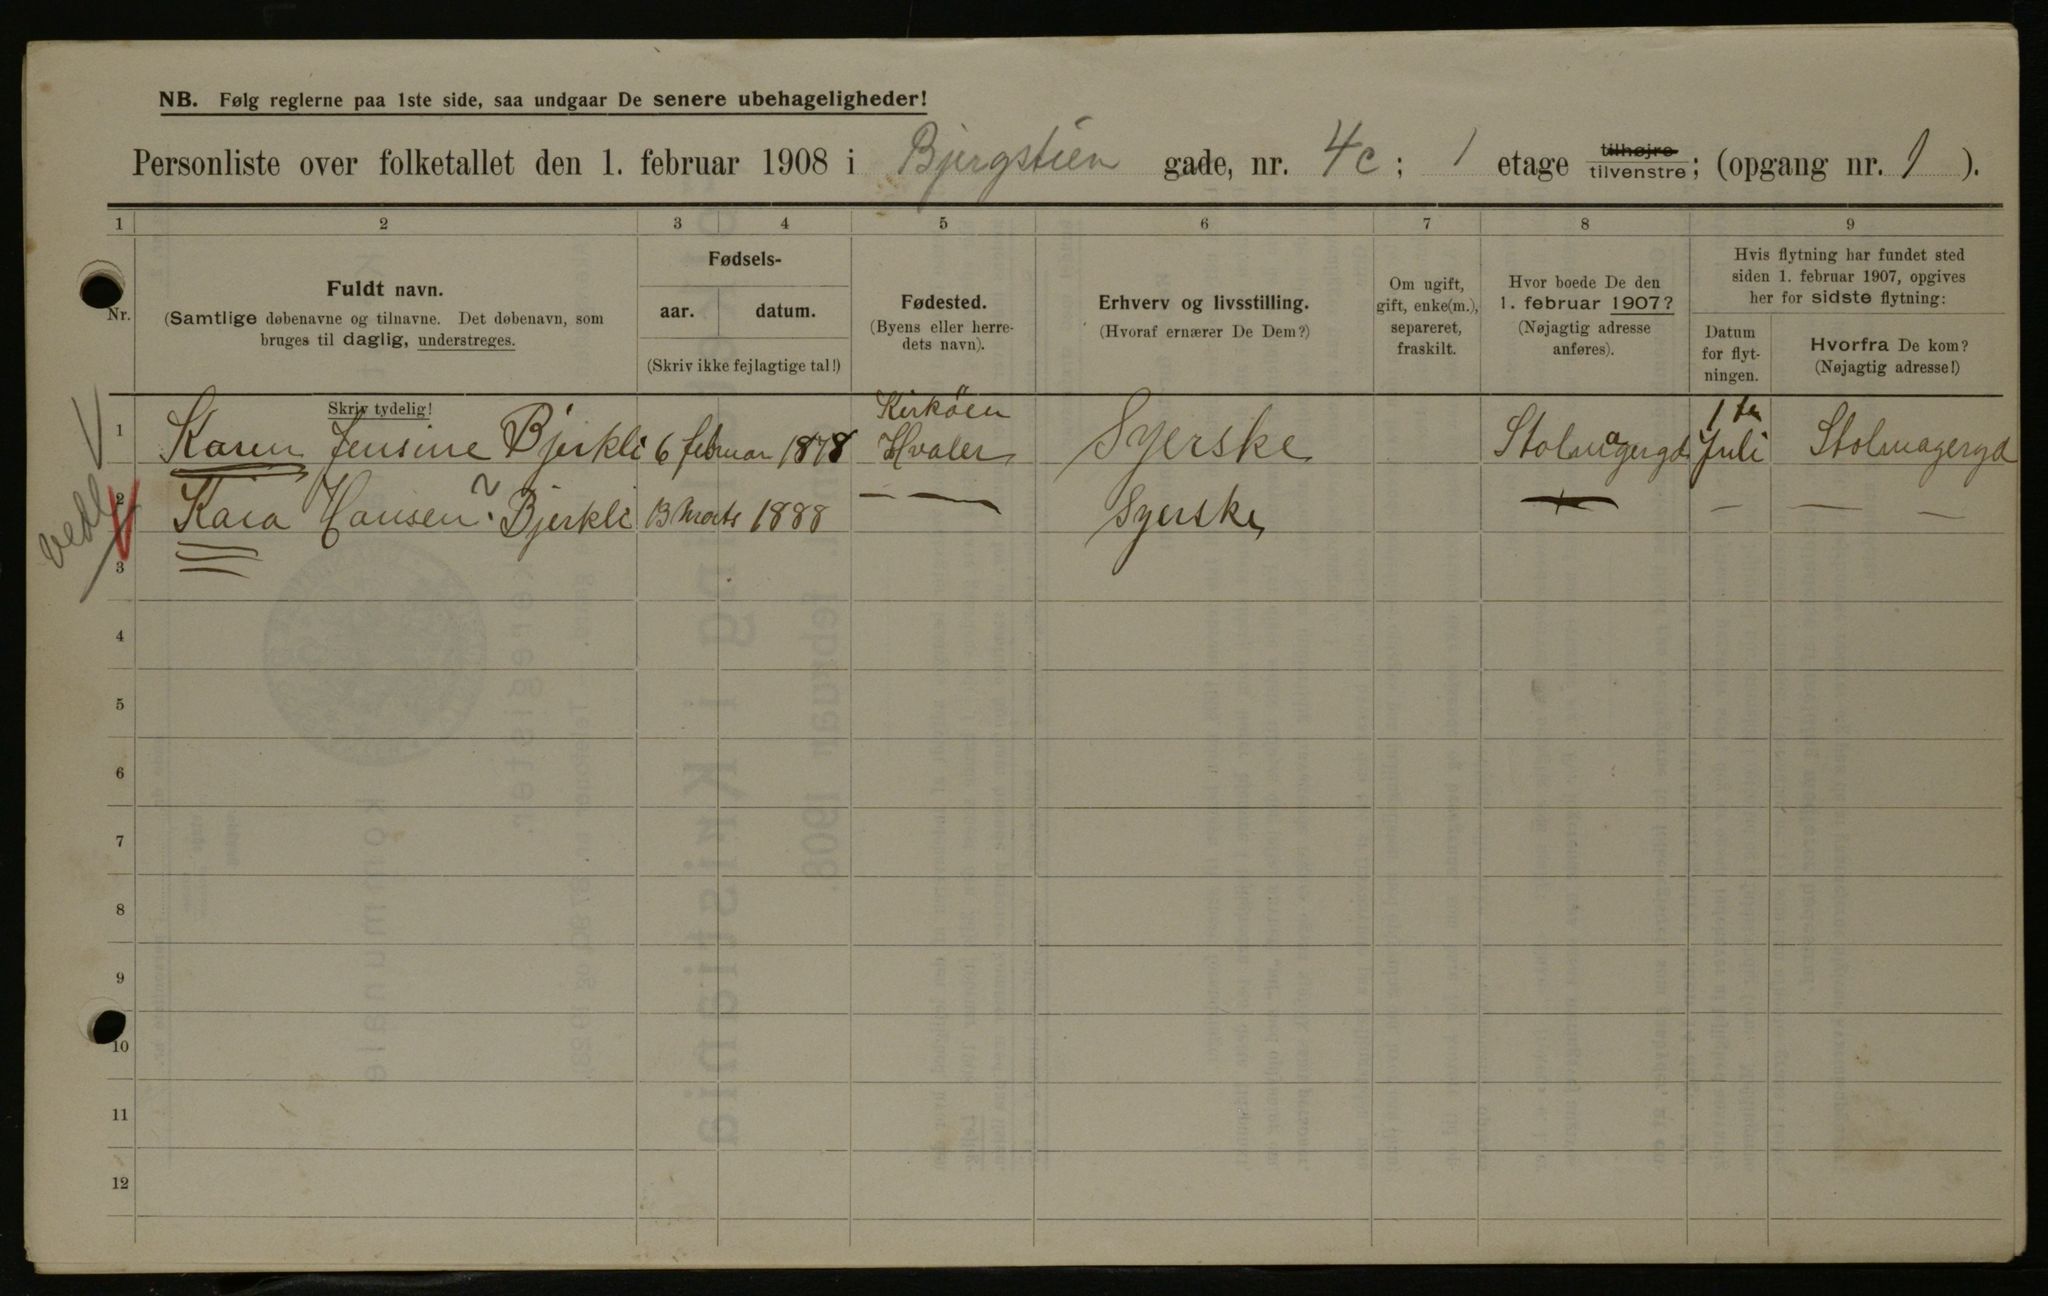 NB. Følg reglerne paa 1ste side, saa undgaar De senere ubehageligheder!
Personliste over folketallet den 1. februar 1908 i Bjergstien gade, nr. 4c; 1 etage tilhøjre tilvenstre; (opgang nr. 1 ).
1 2 3 4 5 6 7 8 9
Nr.
Fuldt navn.
(Samtlige døbenavne og tilnavne. Det døbenavn, som
bruges til daglig, understreges.
Skriv tydelig!
Fødsels-
aar. datum.
(Skriv ikke fejlagtige tal!)
Fødested.
(Byens eller herre-
dets navn).
Erhverv og livsstilling.
(Hvoraf ernærer De Dem?)
Om ugift,
gift, enke(m.),
separeret,
fraskilt.
Hvor boede De den
1. februar 1907?
(Nøjagtig adresse
anføres).
Hvis flytning har fundet sted
siden 1. februar 1907, opgives
her for sidste flytning:
Datum
for flyt-
ningen.
Hvorfra De kom?
(Nøjagtig adresse!)
Kirkøen 1ste
1 Karen Jensine Bjerkli 6 februar 1878 Hvaler Syerske Stolmagergd Juli Stolmagergd
2 Kaia Hansen? Bjerkli 13 Marts 1888 — — Syerske — — — —
3
4
5
6
7
8
9
10
11
12